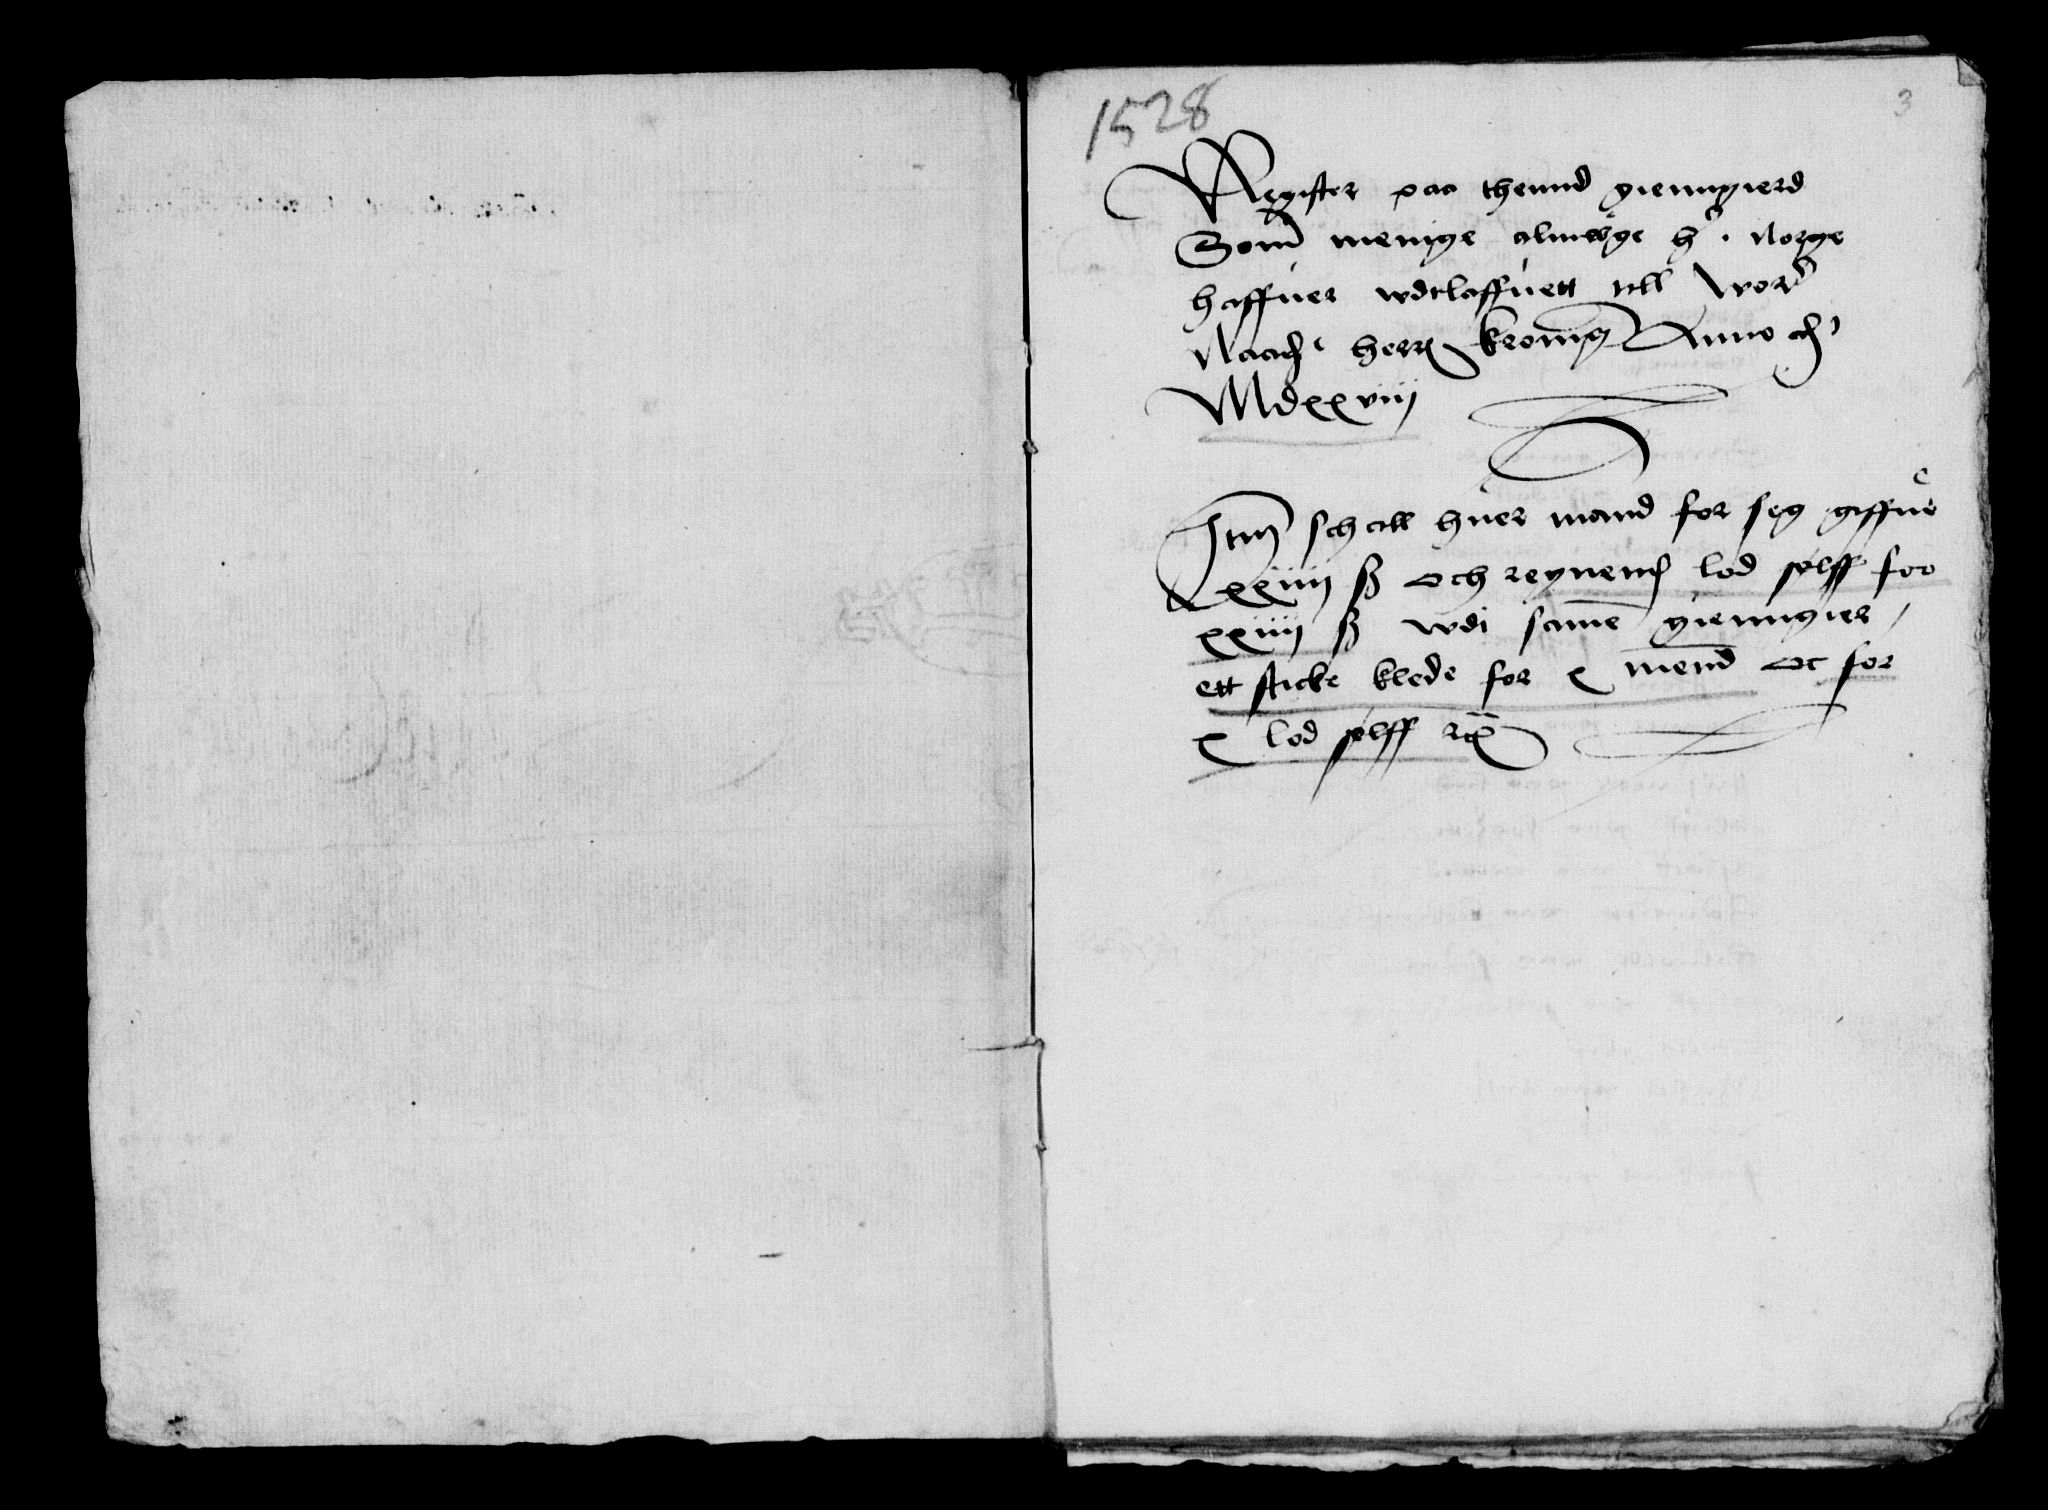 1528
3
Register paa thennd giennigierd
Som menige almwge h i Norge
haffuer wdtlaffuett till wor
Naad herr konnig Anno
Mdxxviij
Itm schall huer mand for seg giffue
xxiiij ß och reyneth lod sølff for
xxiiij ß wdi same giennigier
ett sticke klede for x mend oc for
x lod sølff